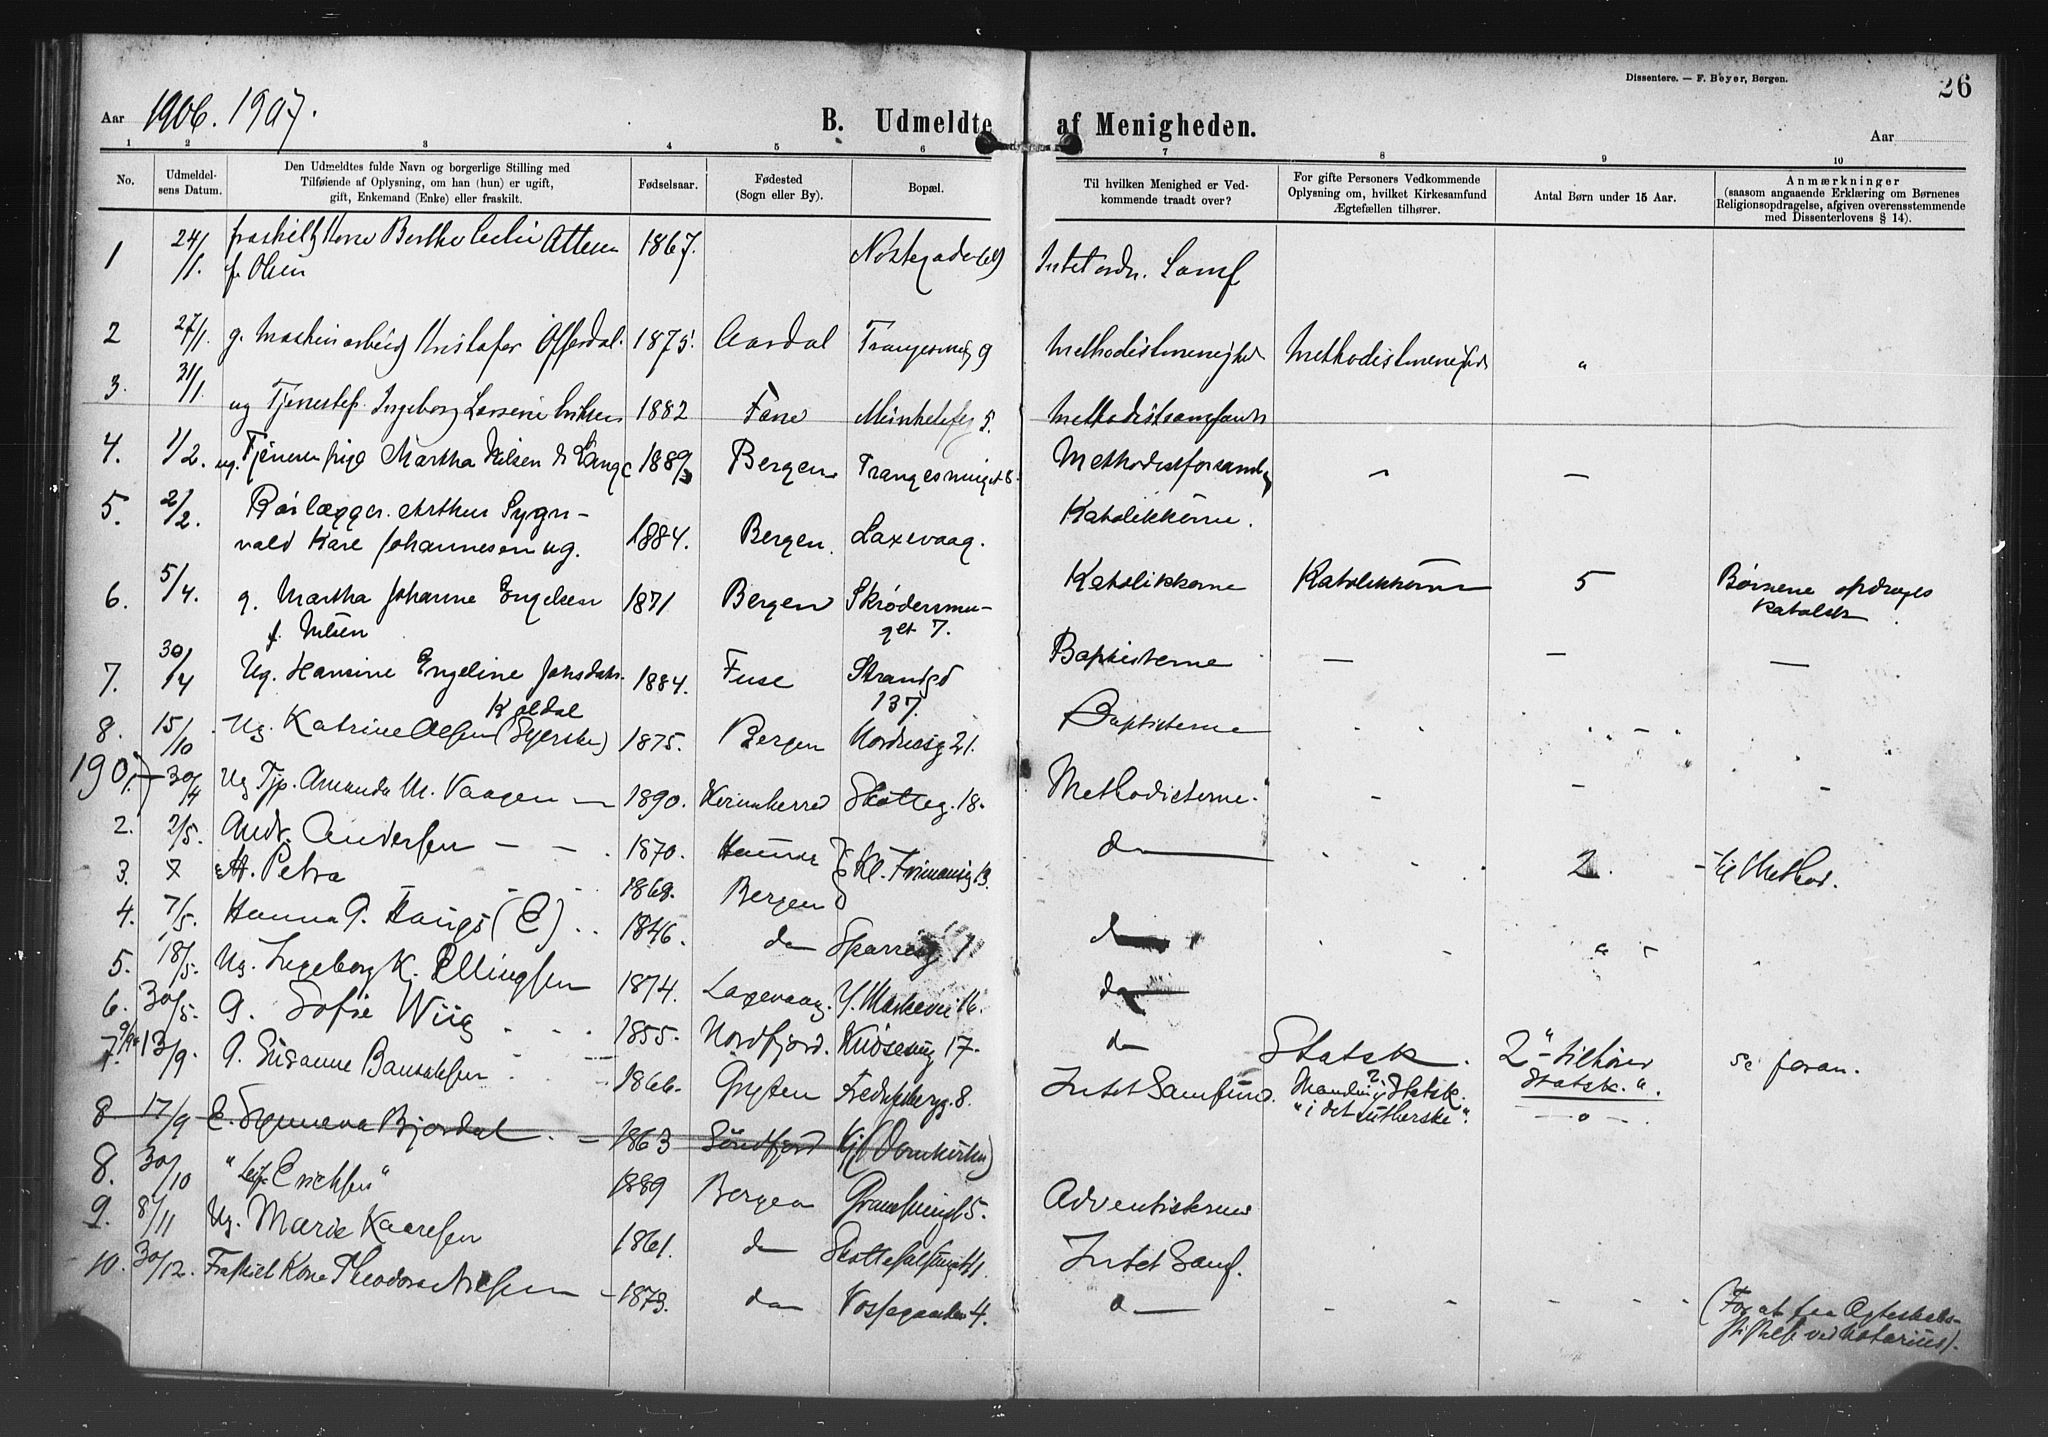 Dissentere. — F. Beyer, Bergen.
26
Aar 1906. 1907.
B. Udmeldte af Menigheden.
Aar
1 2 3 4 5 6 7 8 9 10
No.
Udmeldel-
sens Datum.
Den Udmeldtes fulde Navn og borgerlige Stilling med
Tilføiende af Oplysning, om han (hun) er ugift,
gift, Enkemand (Enke) eller fraskilt.
Fødselsaar.
Fødested
(Sogn eller By).
Bopæl.
Til hvilken Menighed er Ved-
kommende traadt over?
For gifte Personers Vedkommende
Oplysning om, hvilket Kirkesamfund
Ægtefællen tilhører.
Antal Børn under 15 Aar.
Anmærkninger
(saasom angaaende Erklæring om Børnenes
Religionsopdragelse, afgiven overensstemmende
med Dissenterlovens § 14).
1 24/1. fraskilt Kone Berthe 1867. Nostegaden 69 Intet ordn. Samf
f. Olsen
2 27/1. g. Maskinarbeid Kristofer Offerdal. 1875. Aardal 9 Methodistmenighed Methodistmenighed "
3. 31/1. ug Tjenestep. Ingeborg 1882 Methodistsamfund
4. 1/2. ug. Martha Nilsen 1889 Bergen Trangesmuget 8. — —
5. 2/2. Rørlægger Arthur Sygn- Katolikkerne.
vald Kare Johannesen ug. 1884. Bergen. Laxevaag.
6. 5/4. g. Martha Johanne Engelsen 1871 Bergen Skrødersmu- Katolikkerne Katolikkerne 5 Børnene opdrages
f. Nilsen get 7. katolsk
7. 30/4 Ug. Hansine Engeline 1884. Fuse Strandgd Baptisterne — — —
Koldal 137.
8. 15/10 Ug. Katrine Olsen (Syerske) 1875. Bergen Nordnesg 21. Baptisterne
1907. 30/4 Ug Tjp. Amanda M. Vaagen — 1890. Skotteg. 18. Methodisterne. — — —
2. 2/5. Andr. Andersen — — 1870. do
3. H. Petra 1868. Bergen Kl. 13. 2. til Method.
4. 7/5. Hanna G. Haugs (E) 1846. do do
5. 18/5. Ug. Ingeborg K. Ellingsen 1874. Laxevaag. do
6. 30/5. G. Sofie Wiig 1855. Nordfjord. 17. do Statsk. 2 "- tilhører se foran.
Statsk. "
7. 13/9. G. Susanne 1866. 8. Intet Samfund. Manden i Statsk.
"i det lutherske". — o —
8 17/9 E. Synneva Bjordal 1863 Søndfjord
8. 30/10 "Leif Erichsen" 1889 Bergen 5. Adventisterne
9. 8/11 Ug. Marie Kaaresen 1861. do Intet Samf.
10. 30/12. Fraskilt Kone Theodora Nielsen — 1873. do Vossegaaden 4. do — (For at faa Ægteskabs-
stiftelse ved Notarius).